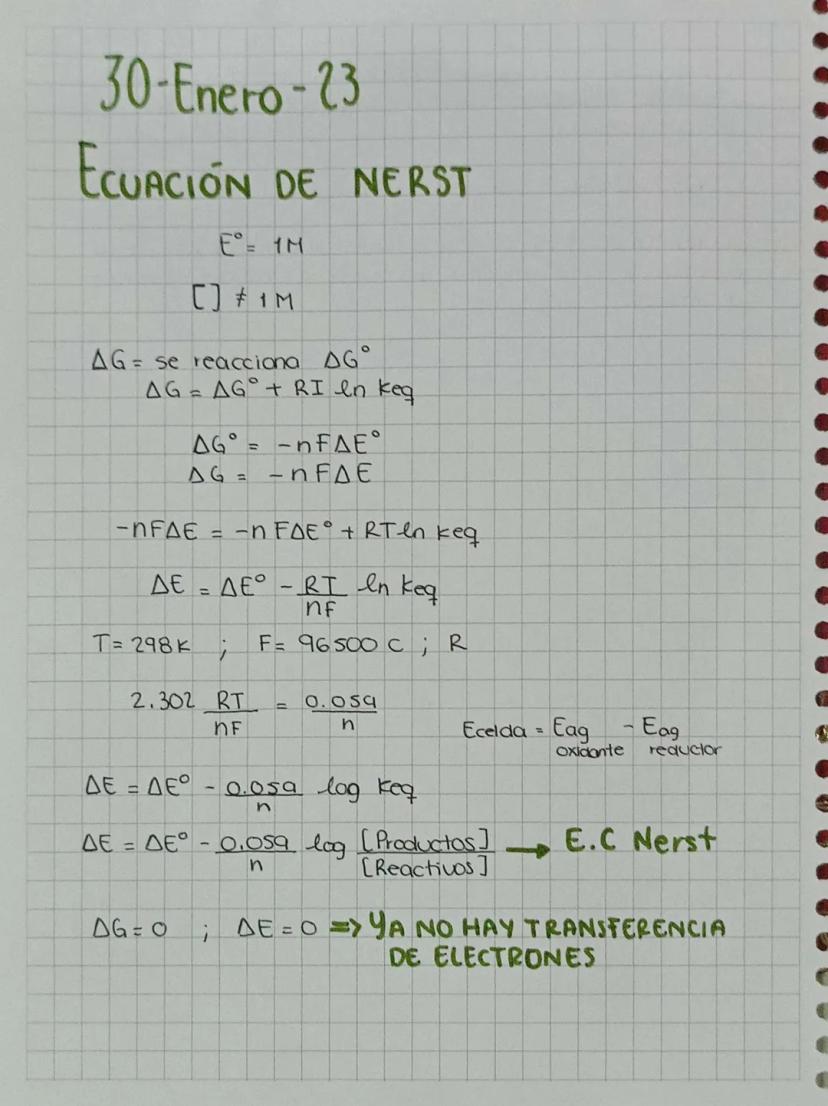 30-Enero-23
ECUACIÓN DE NERST
E° = 1M
[ ] ≠ 1M
ΔG = se reacciona ΔG°
ΔG = ΔG° + RI ln keq
ΔG° = -nFΔE°
ΔG = -nFΔE
-nFΔE = -nFΔE° + RT ln keq
ΔE = ΔE° - RT/nF ln keq
T = 298K ; F = 96500 C ; R
2.302 RT/nF = 0.059/n
Ecelda = Eag oxidante - Eag reductor
ΔE = ΔE° - 0.059/n log keq
ΔE = ΔE° - 0.059/n log [Productos]/[Reactivos] → E.C Nerst
ΔG = 0 ; ΔE = 0 => YA NO HAY TRANSFERENCIA
DE ELECTRONES